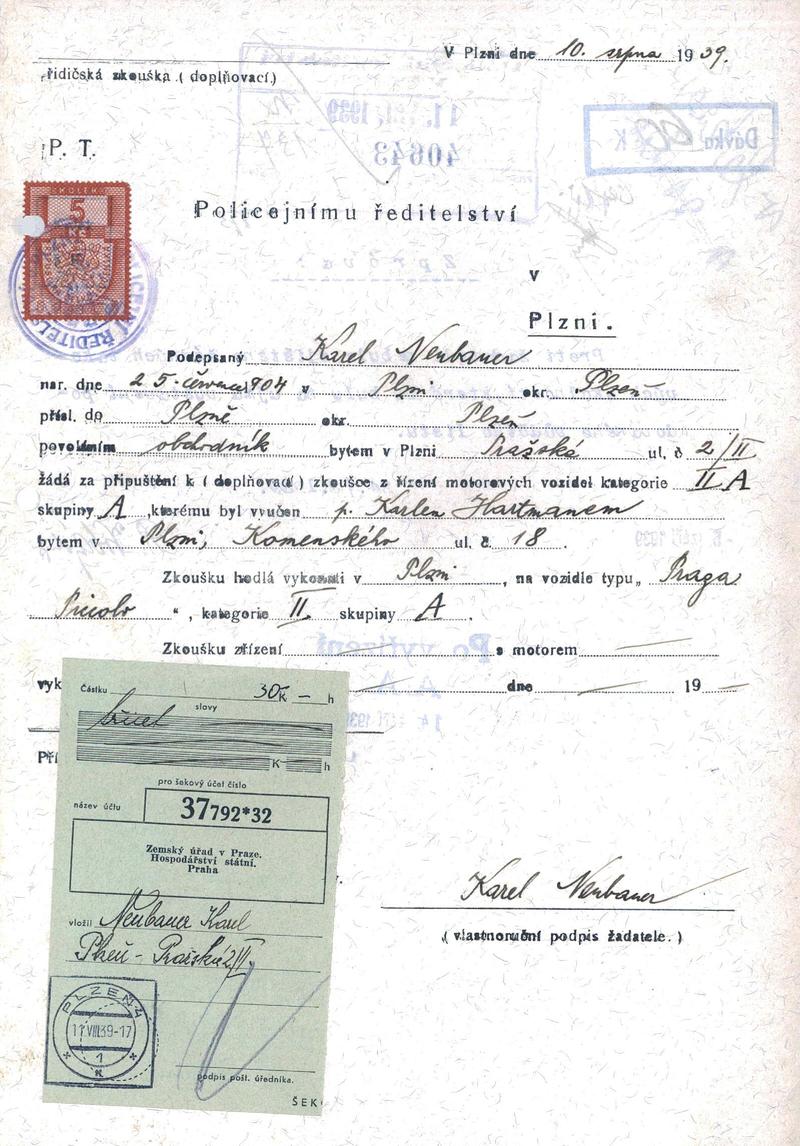 V Plzni dne 10. srpna 1939.
řidičská zkouška ( doplňovací.)
P. T.
KOLEK
5
Policejnímu ředitelství
v
Plzni.
Podepsaný Karel Neubauer
nar. dne 25. července 1904 v Plzni okr. Plzeň
přísl. do Plzně okr. Plzeň
povoláním obchodník bytem v Plzni Pražská ul. č 2/II
žádá za připuštění k ( doplňovací ) zkoušce z řízení motorových vozidel kategorie II A
skupiny A , kterému byl vyučen p. Karlem Hartmanem
bytem v Plzni, Komenského ul. č. 18 .
Zkoušku hodlá vykonati v Plzni , na vozidle typu „ Praga
Piccolo “, kategorie II. skupiny A .
Zkoušku zřízení — s motorem —
vyk — dne — 19 —
Pří
Částku 30 K — h
slovy
třicet
K h
pro šekový účet číslo
název účtu
37792*32
Zemský úřad v Praze.
Hospodářství státní.
Praha
vložil Neubauer Karel
Plzeň - Pražská 2/II.
PLZEŇ 4
11.VIII.39-17
1
podpis pošt. úředníka.
ŠEK
Karel Neubauer
( vlastnoruční podpis žadatele. )